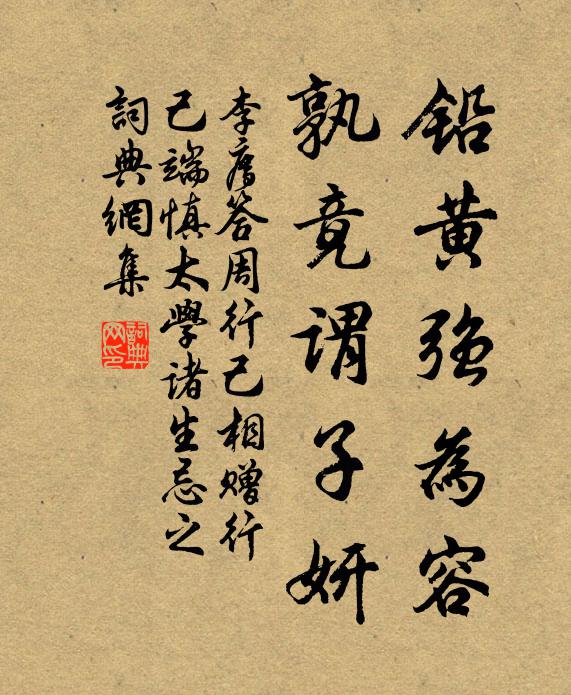 铅黄强為容
孰竟謂子妍
李廌答周行己相赠行
己端慎太學诸生忌之
詞典網集
詞典网印